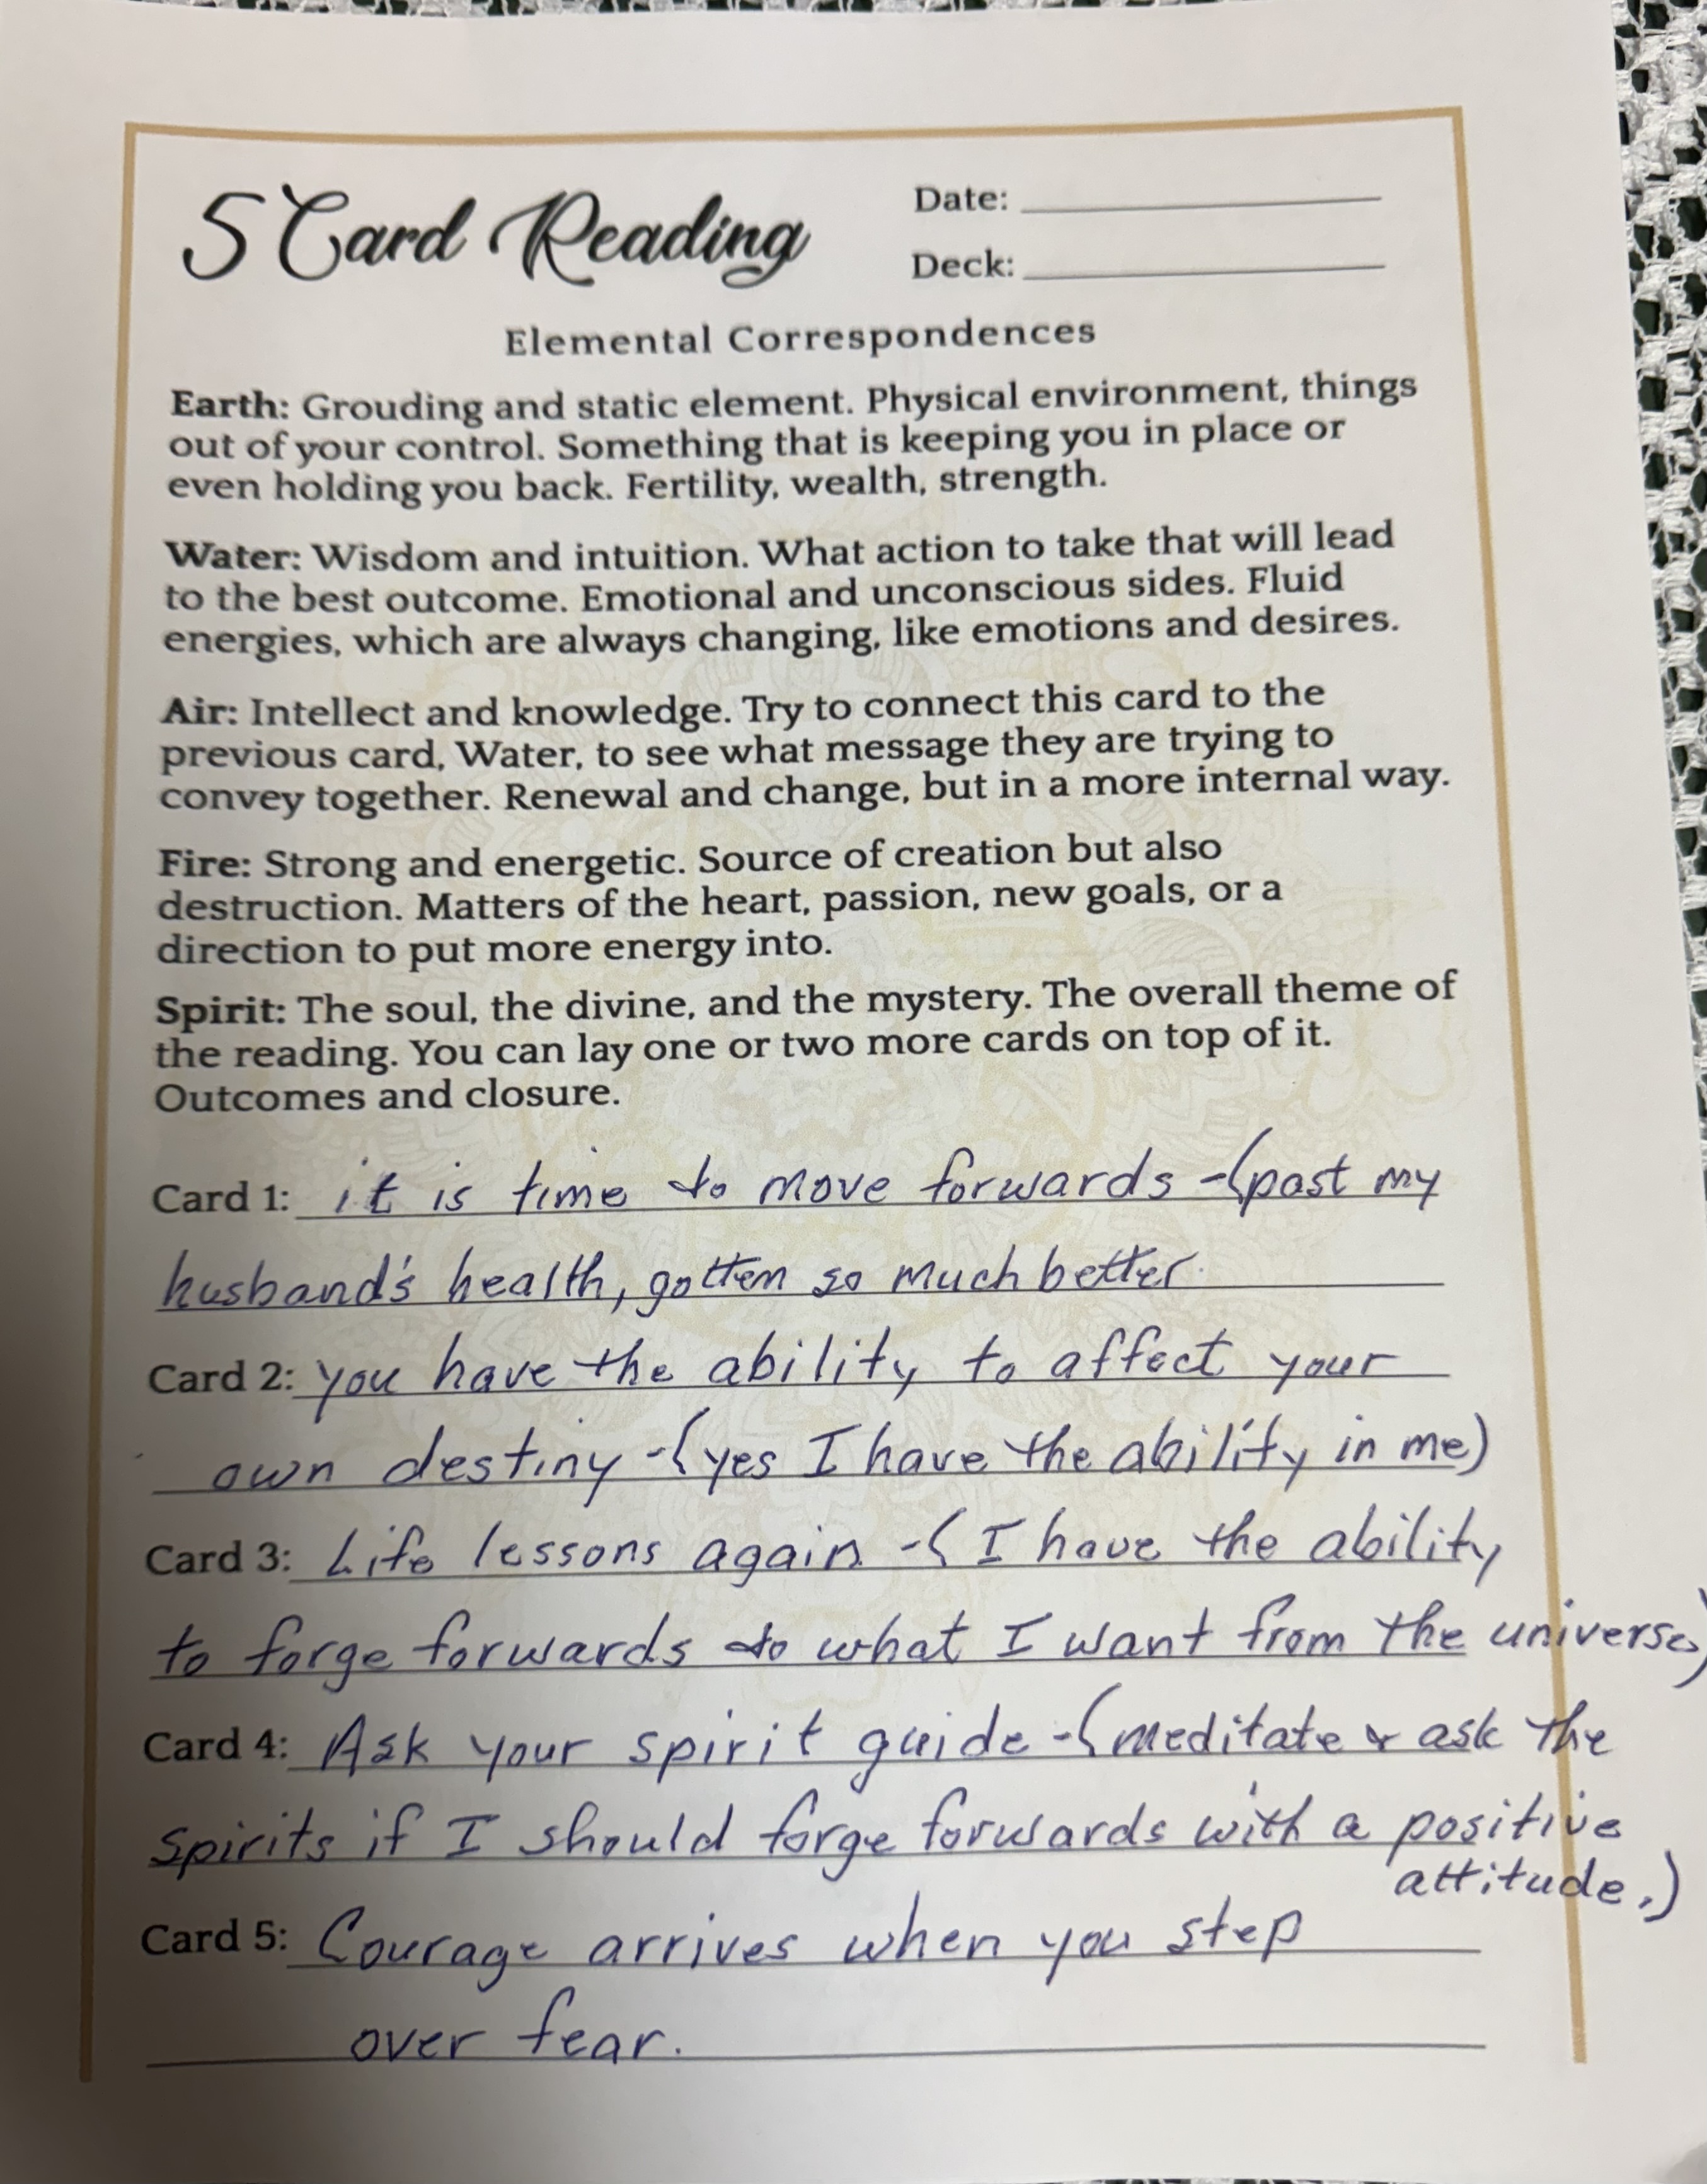 5 Card Reading
Date:
Deck:
Elemental Correspondences
Earth: Grouding and static element. Physical environment, things
out of your control. Something that is keeping you in place or
even holding you back. Fertility, wealth, strength.
Water: Wisdom and intuition. What action to take that will lead
to the best outcome. Emotional and unconscious sides. Fluid
energies, which are always changing, like emotions and desires.
Air: Intellect and knowledge. Try to connect this card to the
previous card, Water, to see what message they are trying to
convey together. Renewal and change, but in a more internal way.
Fire: Strong and energetic. Source of creation but also
destruction. Matters of the heart, passion, new goals, or a
direction to put more energy into.
Spirit: The soul, the divine, and the mystery. The overall theme of
the reading. You can lay one or two more cards on top of it.
Outcomes and closure.
Card 1: it is time to move forwards -(past my
husband's health, gotten so much better.
Card 2: you have the ability to affect your
own destiny -(yes I have the ability in me)
Card 3: Life lessons again -( I have the ability
to forge forwards to what I want from the universe)
Card 4: Ask your spirit guide -(meditate & ask the
spirits if I should forge forwards with a positive
attitude.)
Card 5: Courage arrives when you step
over fear.